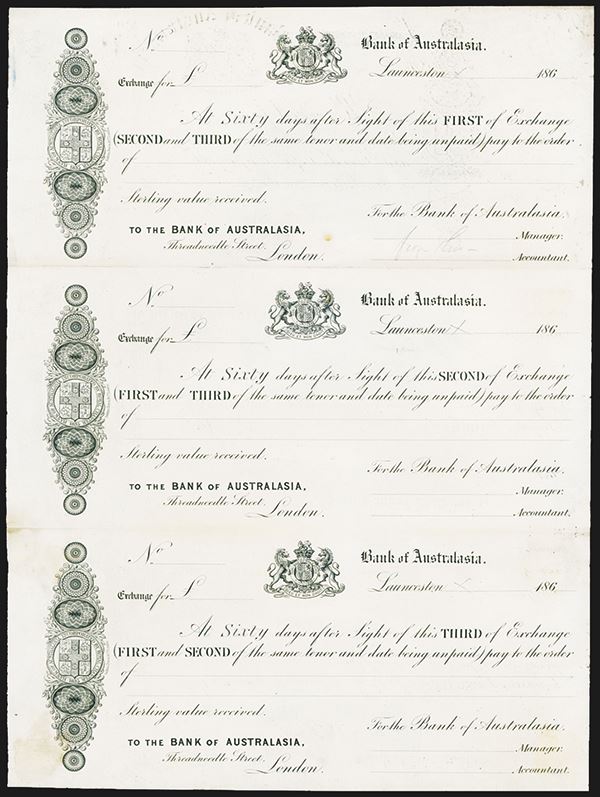 No
Bank of Australasia.
Launceston 186
Exchange for £
At Sixty days after Sight of this FIRST of Exchange
(SECOND and THIRD of the same tenor and date being unpaid) pay to the order
of
Sterling value received.
For the Bank of Australasia.
TO THE BANK OF AUSTRALASIA,
Manager.
Threadneedle Street.
London.
Accountant.
No
Bank of Australasia.
Launceston 186
Exchange for £
At Sixty days after Sight of this SECOND of Exchange
(FIRST and THIRD of the same tenor and date being unpaid) pay to the order
of
Sterling value received.
For the Bank of Australasia.
TO THE BANK OF AUSTRALASIA,
Manager.
Threadneedle Street.
London.
Accountant.
No
Bank of Australasia.
Launceston 186
Exchange for £
At Sixty days after Sight of this THIRD of Exchange
(FIRST and SECOND of the same tenor and date being unpaid) pay to the order
of
Sterling value received.
For the Bank of Australasia.
TO THE BANK OF AUSTRALASIA,
Manager.
Threadneedle Street.
London.
Accountant.